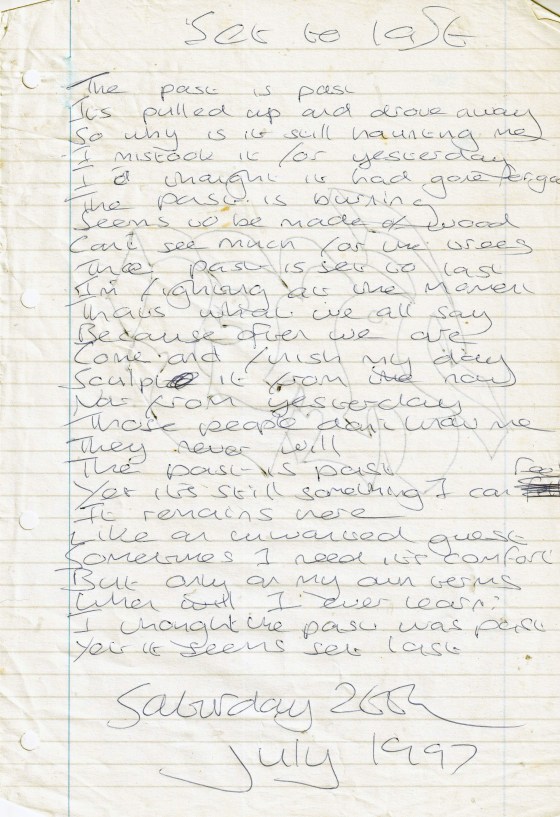 Set to last
The past is past
It's pulled up and drove away
So why is it still haunting me
I mistook it for yesterday
I'd thought it had gone forgo
The past is burning
Seems to be made of wood
Can't see much for the trees
That past is set to last
I'm fighting at the moment
That's what we all say
Because often we are
Come and finish my day
Sculpt it from the now
Not from yesterday
Those people don't know me
They never will
The past is past
Yet it's still something I can Feel
It remains here
Like an unwanted guest
Sometimes I need it's comfort
But only on my own terms
When will I ever learn?
I thought the past was past
Yet it seems set last
Saturday 26th
July 1997